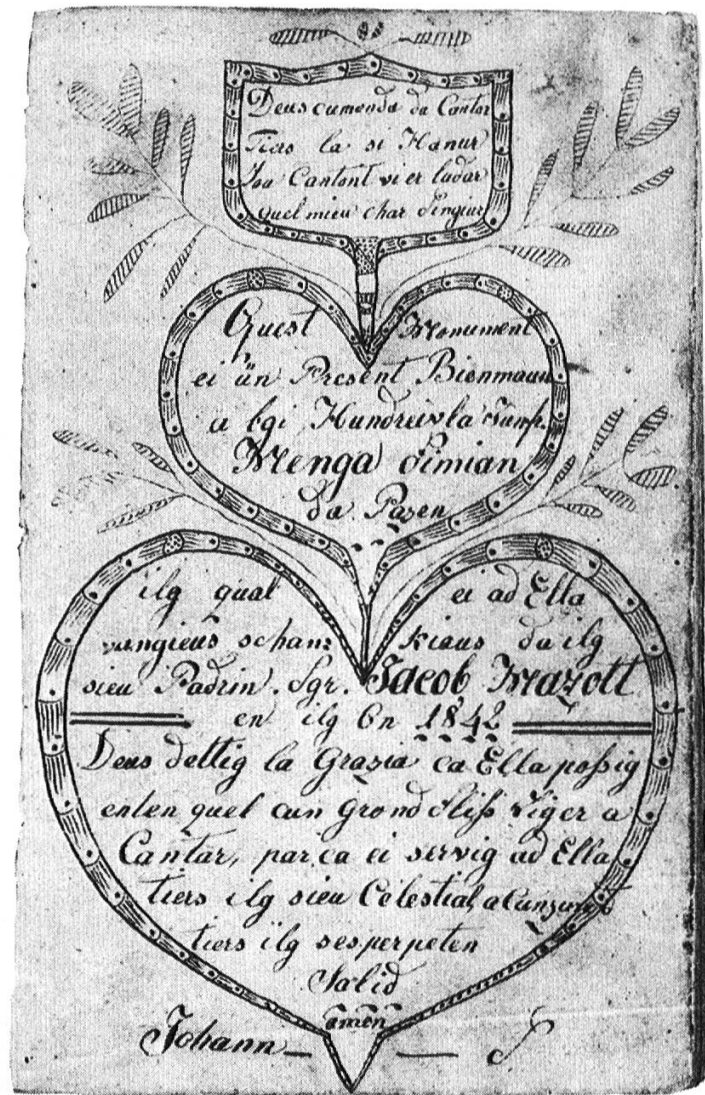 Deus cumonda da Cantar
Tiers la si Hanur
Joa Cantont vi er ludar
Quel mieu char Singiur
Quest Monument
ei ün Present Bienmaun
a lgi Hundreivla Junfr.
Menga Simian
da Pazen
ilg qual ei ad Ella
vangieus schanz kiaus da ilg
sieu Padrin. Sgr. Jacob Mazott
en ilg On 1842
Deus dettig la Grazia ca Ella poßig
enten quel cun Grond fliß Liger a
Cantar, par ca ei servig ad Ella
tiers ilg sieu Celestial, a
tiers ilg ses perpeten
Salid
amen
Johann S